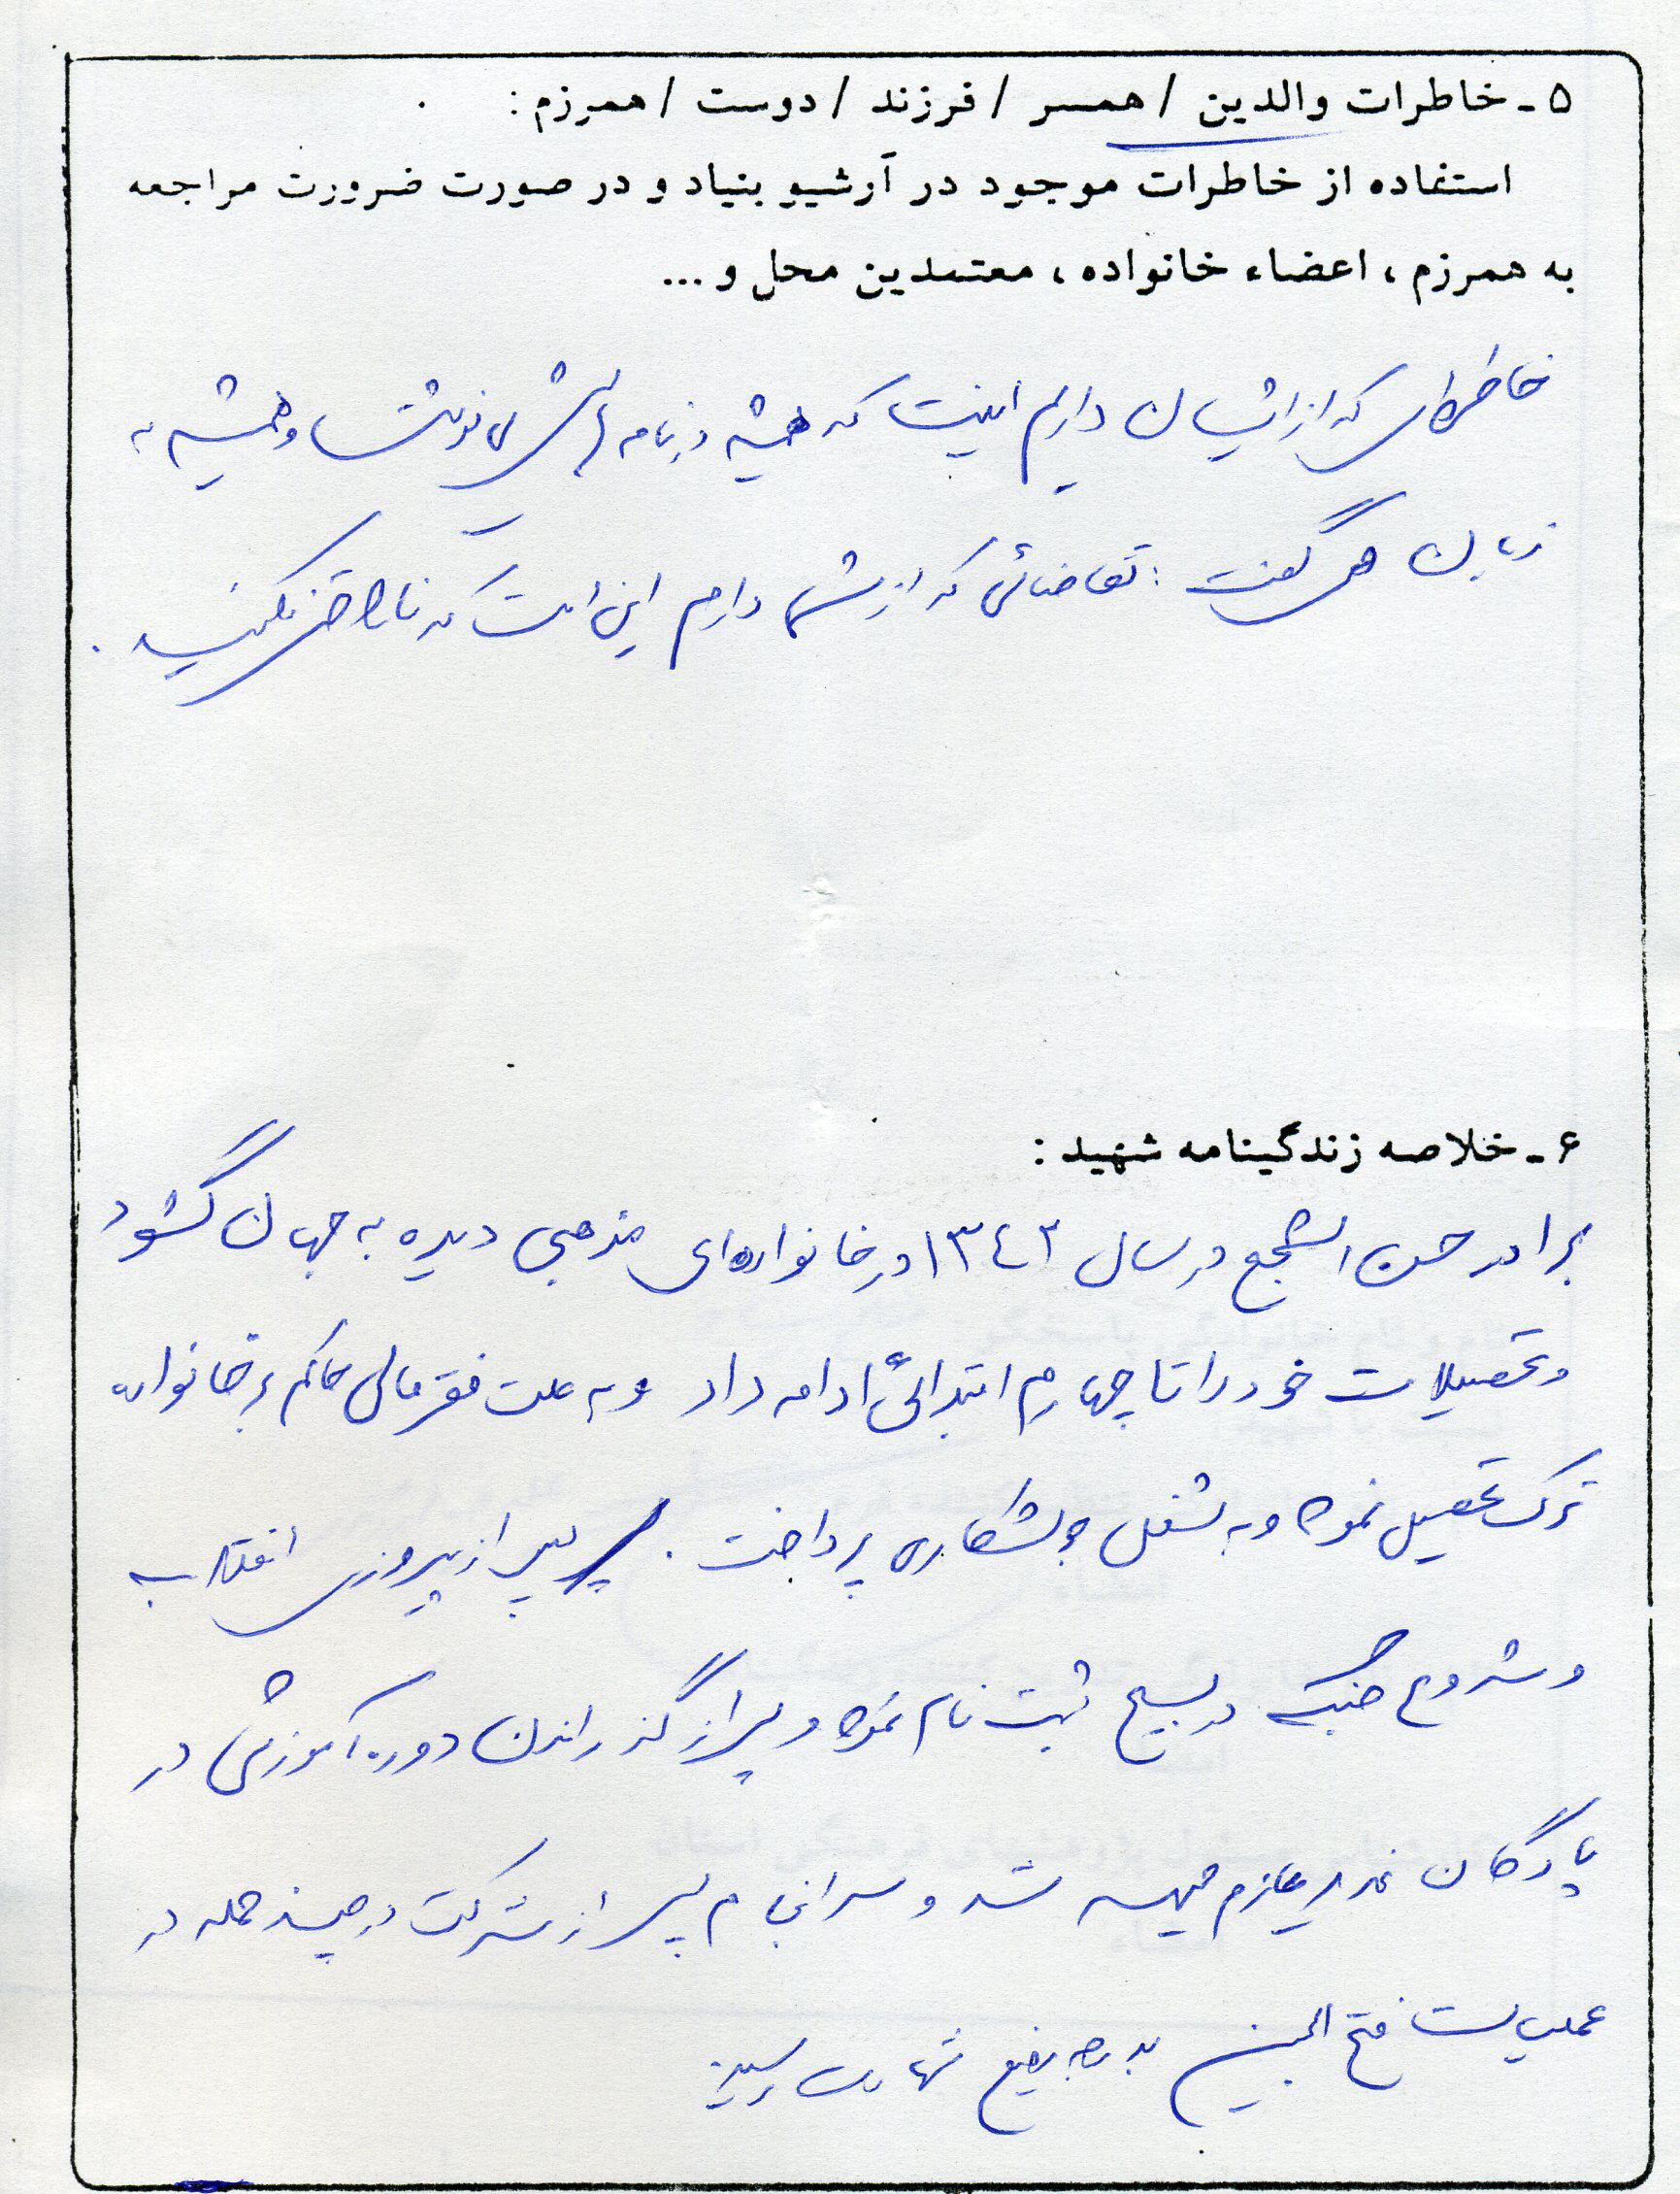 ۵ - خاطرات والدین / همسر / فرزند / دوست / همرزم :
استفاده از خاطرات موجود در آرشیو بنیاد و در صورت ضرورت مراجعه
به همرزم ، اعضاء خانواده ، معتمدین محل و ...
خاطره‌ای که از ایشان داریم اینست که همیشه در نامه هایش می نوشت و همیشه به
زبان می گفت : تقاضائی که از شما دارم این است که ناراحتی نکنید .
۶ - خلاصه زندگینامه شهید :
برادر حسن اشجع در سال ۱۳۴۲ در خانواده‌ای مذهبی دیده به جهان گشود
و تحصیلات خود را تا چهارم ابتدائی ادامه داد و به علت فقر مالی حاکم بر خانواده
ترک تحصیل نموده و به شغل جوشکاری پرداخت . پس از پیروزی انقلاب
و شروع جنگ در بسیج ثبت نام نموده و پس از گذراندن دوره آموزشی در
پادگان غدیر عازم جبهه شد و سرانجام پس از شرکت در چند حمله در
عملیات فتح المبین بدرجه رفیع شهادت رسید